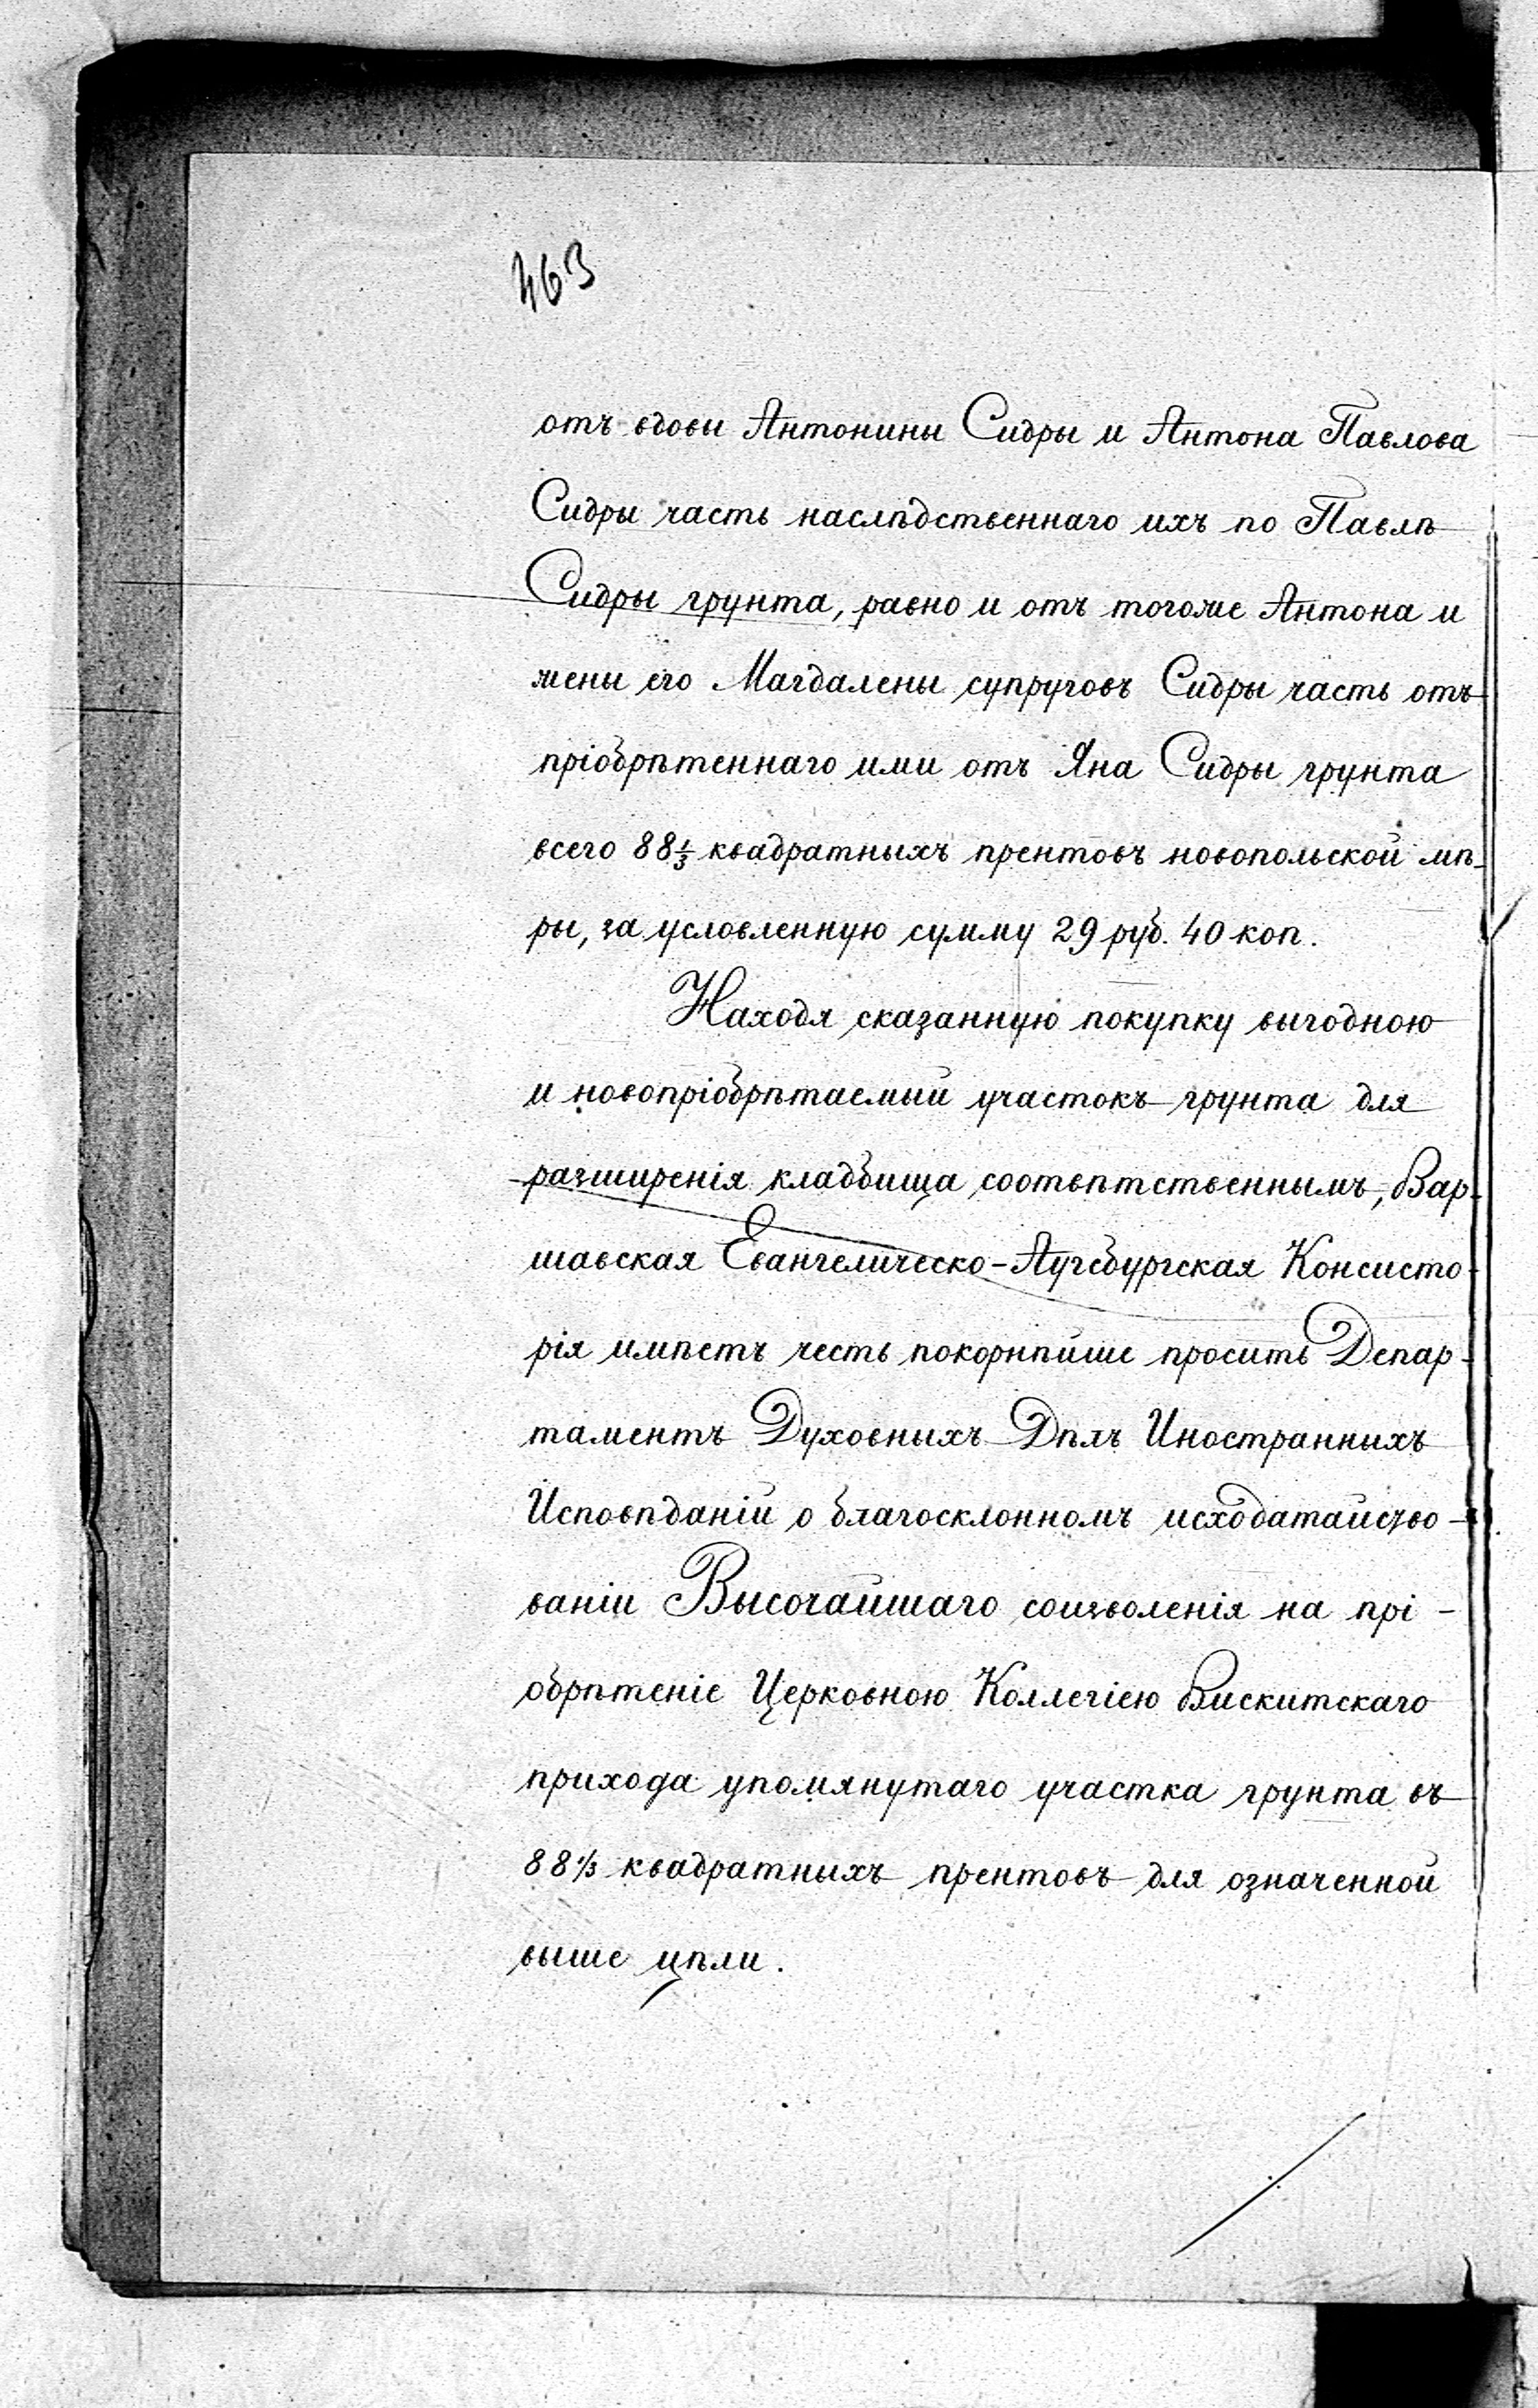 463
отъ вдовы Антонины Сидры и Антона Павлова
Сидры часть наслѣдственнаго ихъ по Павлѣ
Сидры грунта, равно и отъ тогоже Антона и
жены его Магдалены супруговъ Сидры часть отъ
пріобрѣтеннаго ими отъ Яна Сидры грунта
всего 88⅓ квадратныхъ прентовъ новопольской мѣ-
ры, за условленную сумму 29 руб. 40 коп.
Находя сказанную покупку выгодною
и новопріобрѣтаемый участокъ грунта для
разширенія кладбища соотвѣтственнымъ, Вар-
шавская Евангелическо-Аугсбургская Консисто-
рія имѣетъ честь покорнѣйше просить Депар-
таментъ Духовныхъ Дѣлъ Иностранныхъ
Исповѣданій о благосклонномъ исходатайство-
ваніи Высочайшаго соизволенія на прі-
обрѣтеніе Церковною Коллегіею Вискитскаго
прихода упомянутаго участка грунта въ
88⅓ квадратныхъ прентовъ для означенной
выше цѣли.